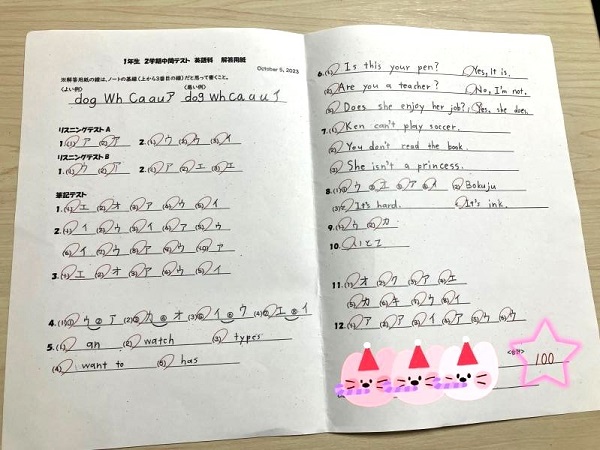 1年生 2学期中間テスト 英語科 解答用紙
October 5, 2023
※解答用紙の線は、ノートの基線（上から3番目の線）だと思って書くこと。
（よい例） （悪い例）
dog Wh Ca a u ア dog wh ca a u イ
リスニングテスト A
1. (1) ア (2) ア 2. (1) ウ (2) ウ (3) イ
リスニングテスト B
1. (1) ウ (2) ア 2. (1) ア (2) エ (3) エ
筆記テスト
1. (1) エ (2) オ (3) ア (4) ウ (5) イ
2. (1) イ (2) ウ (3) イ (4) ア (5) ウ
(6) イ (7) ウ (8) ア (9) ウ (10) ア
3. (1) エ (2) オ (3) ア (4) ウ (5) イ
4. (1)① ウ ② ア (2)① カ ② オ (3)① イ ② ウ (4)① エ ② イ
5. (1) an (2) watch (3) types
(4) want to (5) has
6. (1) Is this your pen? Yes, It is.
(2) Are you a teacher? No, I'm not.
(3) Does she enjoy her job? Yes, she does.
7. (1) Ken can't play soccer.
(2) You don't read the book.
(3) She isn't a princess.
8. (1)① ウ ② エ ③ ア ④ イ (2) Bokuju
(3) It's hard. It's ink.
9. (1) ウ (2) カ
10.
11. (1) オ (2) ク (3) ア (4) エ
(5) カ (6) キ (7) ウ (8) イ
12. (1) ア (2) ア (3) イ (4) ア (5) ウ (6) ウ
＜合計＞ 100